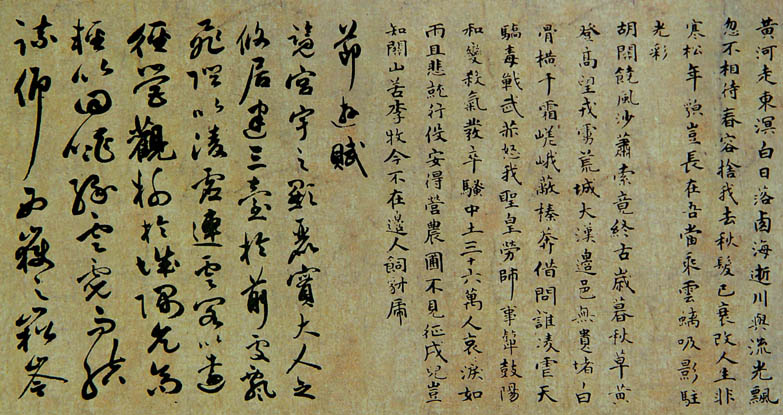 黃河走東溟白日落西海逝川與流光飄
忽不相待春容捨我去秋髮已衰改人生非
寒松年貌豈長在吾當乘雲螭吸影駐
光彩
胡關饒風沙蕭索竟終古歲暮秋草黃
登高望戎虜荒城大漠邊邑無遺堵白
骨橫千霜嵯峨蔽榛莽借問誰凌虐天
驕毒戰武赫怒我聖皇勞師事鼙鼓陽
和變殺氣發卒騷中土三十六萬人哀淚如
雨且悲就行役安得營農圃不見征戍兒豈
知關山苦李牧今不在邊人飼豺虎
節遊賦
覽宮宇之顯麗實大人之
攸居建三臺於前處飄
飛陛以凌虛連雲閣以遠
徑營觀榭於城隅亢高
軒以迥眺緣雲霓而結
疏仰西嶽之崧岑